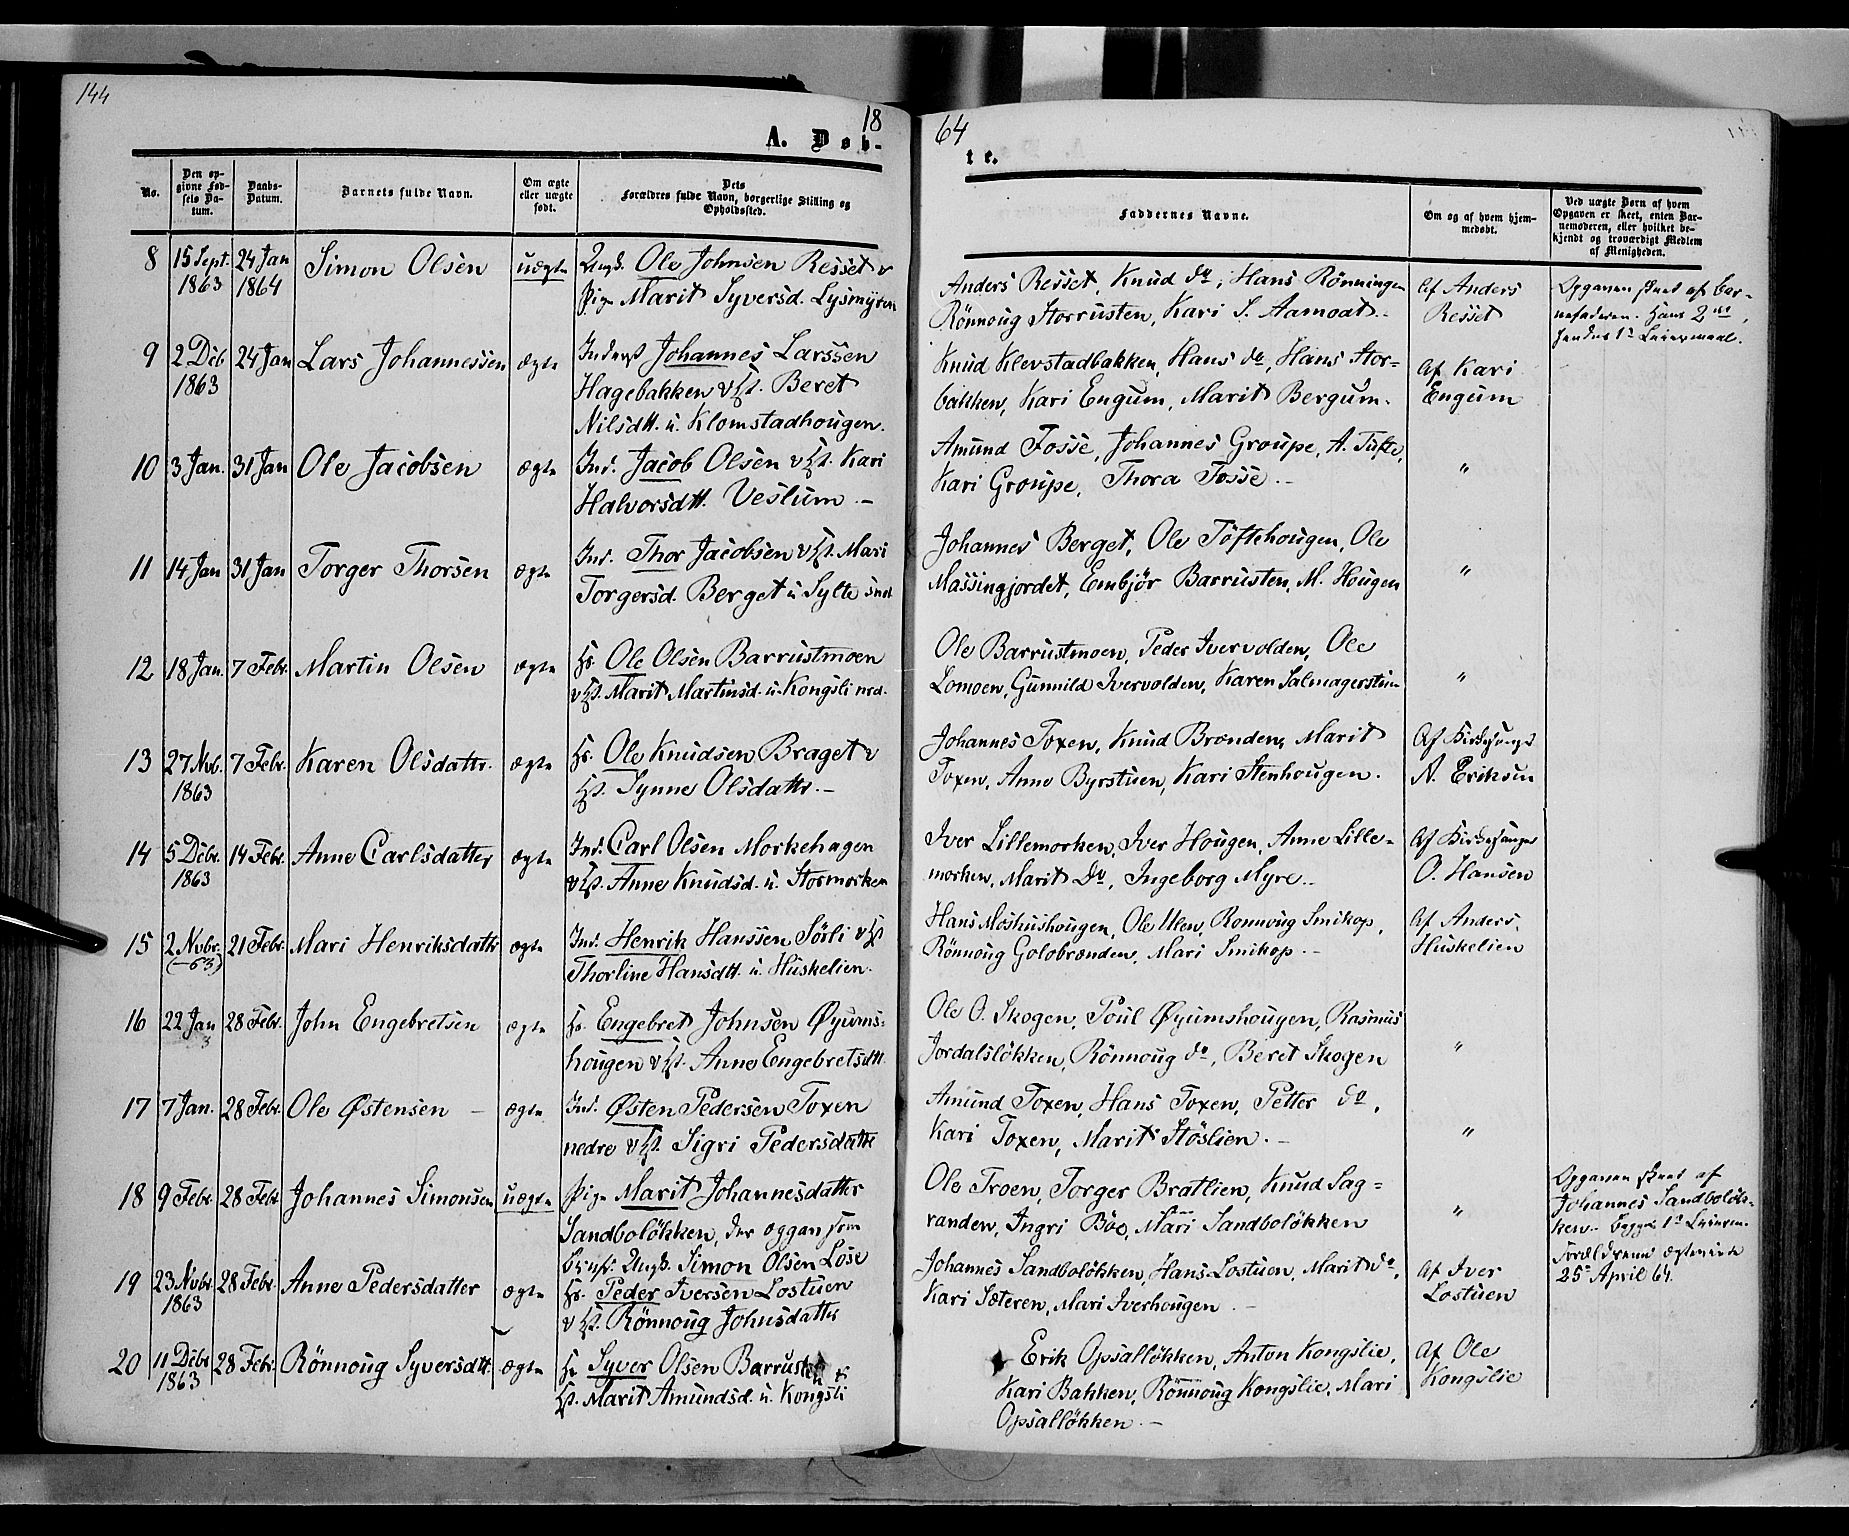 144
18
64
A. Døb-
te.
No.
Den op-
givne Fød-
sels Da-
tum.
Daabs-
Datum.
Barnets fulde Navn.
Om ægte
eller uægte
født.
Dets
Forældres fulde Navn, borgerlige Stilling og
Opholdssted.
Faddernes Navne.
Om og af hvem hjem-
medøbt.
Ved uægte Børn af hvem
Opgaven er skeet, enten Bar-
nemoderen, eller hvilket be-
kjendt og troværdigt Medlem
af Menigheden.
8 15 Sept. 1863 24 Jan 1864 Simon Olsen uægte
Ungk. Ole Johnsen Resset v
Pige Marit Syversd. Lysmyren
Anders Resset, Knud do, Hans Rønningen
Rønnoug Storrusten, Kari S. Aamodt.
Af Anders
Resset
Opgaven skeet af Bar-
nefaderen. Hans 2det,
hendes 1ste Leiermaal.
9 2 Deb 1863 24 Jan Lars Johannessen ægte
Inderst Johannes Larssen
Hagebakken v Hst. Beret
Nilsdtt. u. Klomstadhougen.
Knud Klevstadbakken, Hans do, Hans Stor-
bakken, Kari Engum, Marit Bergum.
Af Kari
Engum
10 3 Jan. 31 Jan Ole Jacobsen ægte
Ind. Jacob Olsen v Hst. Kari
Halvorsdtt. Veslum.—
Amund Fosse, Johannes Groupe, A. Tufte,
Kari Groupe, Thora Fosse.—
"
11 14 Jan 31 Jan Torger Thorsen ægte
Ind. Thor Jacobsen v Hst. Mari
Torgersd. Berget u Sylte
Johannes Berget, Ole Töftehougen, Ole
Massingjordet, Embjör Barrusten, M. Hougen
"
12 18 Jan. 7 Febr. Martin Olsen ægte
Hr. Ole Olsen Barrustmoen
v Hst. Marit Martinsd. u. Kongsli ned.
Ole Barrustmoen, Peder Ivervolden, Ole
Lomoen, Gunnild Ivervolden, Karen Salmagerstuen
"
13 27 Nvb. 1863 7 Febr. Karen Olsdattr. ægte
Hr. Ole Knudsen Braget v
Hst. Synne Olsdattr.—
Johannes Toxen, Knud Brænden, Marit
Toxen, Anne Byrstuen, Kari Stenhougen.
Af Kirkesanger
A. Eriksen
14 5 Debr. 1863 14 Febr. Anne Carlsdatter ægte
Ind. Carl Olsen Morkehagen
v Hst. Anne Knudsd. u. Stormorken
Iver Lillemorken, Iver Hougen, Anne Lille-
morken, Marit Do, Ingeborg Myre.
Af Kirkesanger
O. Hansen
15 2 Nvbr. (—63) 21 Febr. Mari Henriksdattr ægte
Ind. Henrik Hanssen Sörli v Hst
Thorline Hansdtt. u. Huskelien.
Hans Moshushougen, Ole Ulen, Ronnoug Smikop,
Rönnoug Golobrænden, Mari Smikop.—
Af Anders
Huskelien
16 22 Jan 28 Febr. John Engebretsen ægte
Hr. Engebret Johnsen Øyums-
hougen v Hst. Anne Engebretsdtt.
Ole O. Skogen, Poul Øyumshougen, Rasmus
Jordalslökken, Rönnoug do, Beret Skogen
"
17 7 Jan. 28 Febr. Ole Østensen — ægte
Ind. Østen Pedersen Toxen
nedre v Hst. Sigri Pedersdattr
Amund Toxen, Hans Toxen, Petter do,
Kari Toxen, Marit Stöslien.—
"
18 9 Febr. 28 Febr Johannes Simonsen uægte
Pige Marit Johannesdatter
Sandbolökken, der opgav som
Barnef. Ungk. Simon Olsen Løse
Ole Troen, Torger Bratlien, Knud Sag-
randen, Ingri Böe, Mari Sandbolökken
"
Opgaven skeet af
Johannes Sandboløk-
ken. Begges 1ste Leierm.
Forældrene ægteviede
25de April 64.
19 23 Nvbr. 1863 28 Febr. Anne Pedersdatter ægte
Hr. Peder Iversen Lostuen
v Hst. Rönnoug Johnsdatter
Johannes Sandbolökken, Hans Lostuen, Marit do,
Kari Sæteren, Mari Iverhougen.—
Af Iver
Lostuen
20 11 Debr 1863 28 Febr. Rönnoug Syversdtt. ægte
Hr Syver Olsen Barrusten v
Hst. Marit Amundsd. u. Kongsli
Erik Opsallökken, Anton Kongslie,
Kari Bakken, Rönnoug Kongslie, Mari
Opsallökken.—
Af Ole
Kongslie